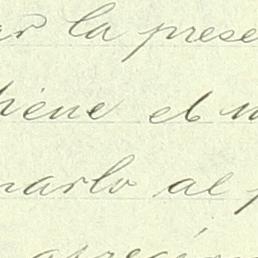 ar la prese
tiene el
narlo al p